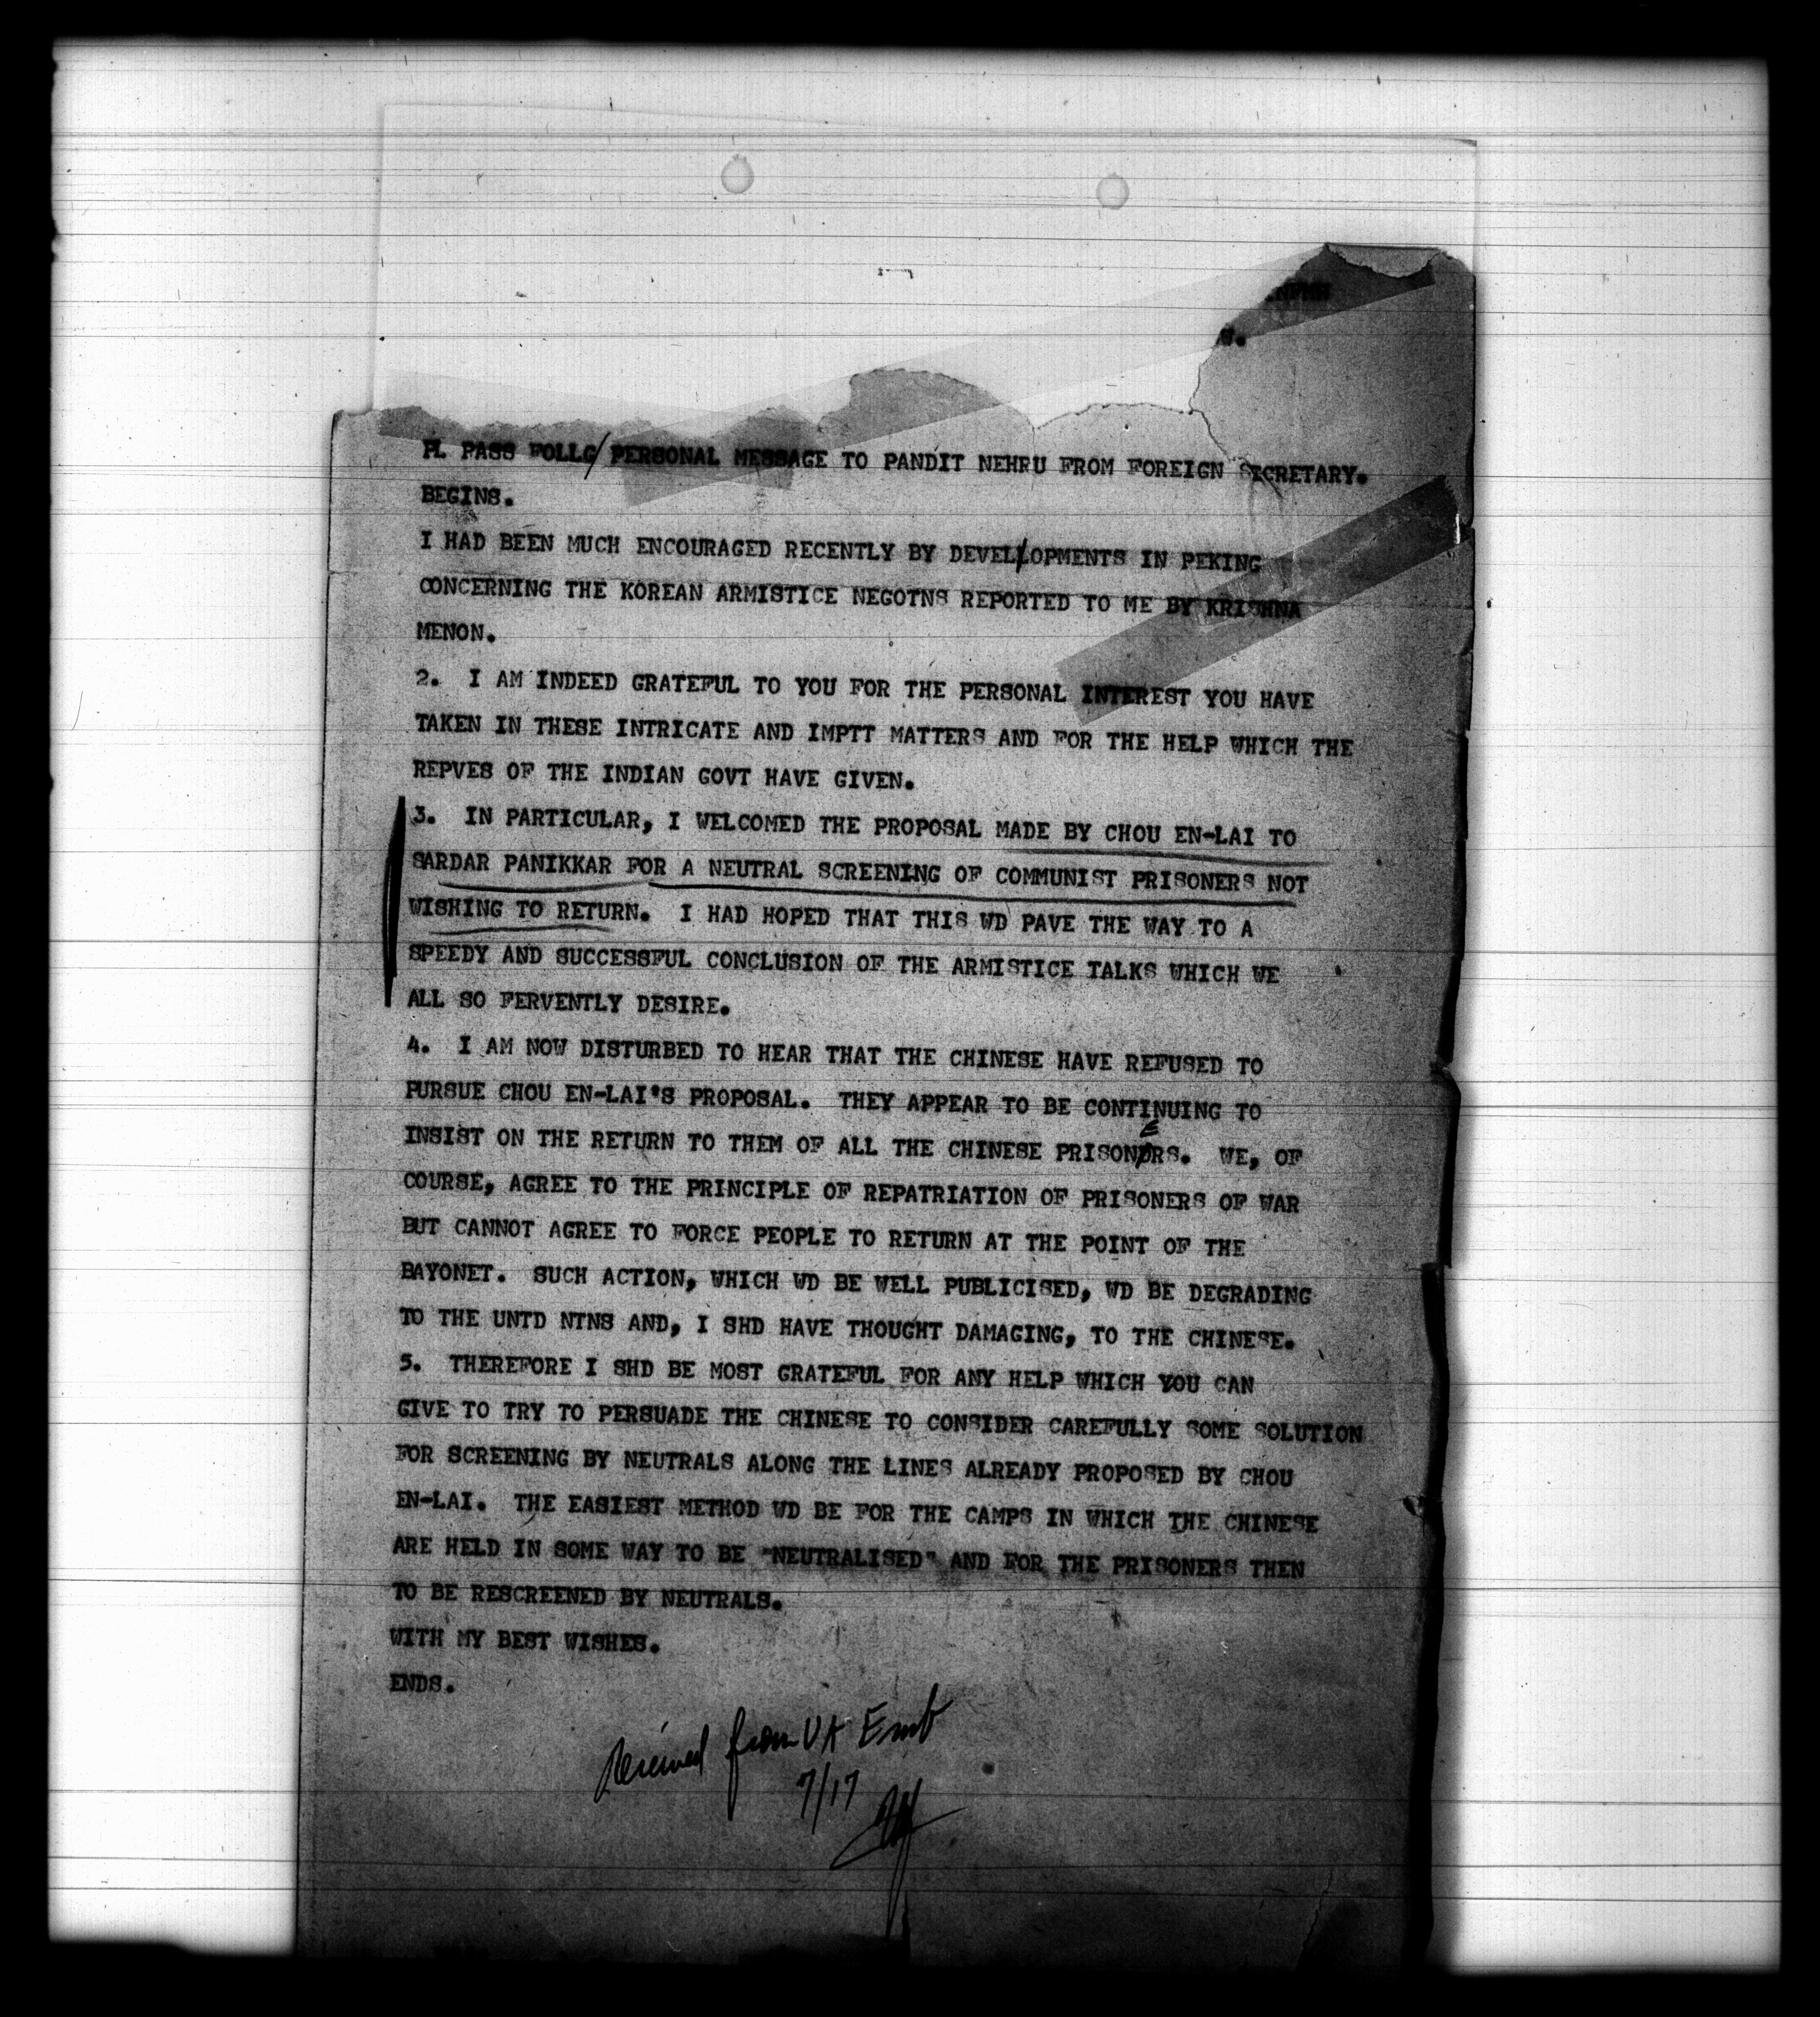 PL PASS FOLLG/PERSONAL MESSAGE TO PANDIT NEHRU FROM FOREIGN SECRETARY.
BEGINS.
I HAD BEEN MUCH ENCOURAGED RECENTLY BY DEVELOPMENTS IN PEKING
CONCERNING THE KOREAN ARMISTICE NEGOTNS REPORTED TO ME BY KRISHNA
MENON.
2. I AM INDEED GRATEFUL TO YOU FOR THE PERSONAL INTEREST YOU HAVE
TAKEN IN THESE INTRICATE AND IMPTT MATTERS AND FOR THE HELP WHICH THE
REPVES OF THE INDIAN GOVT HAVE GIVEN.
3. IN PARTICULAR, I WELCOMED THE PROPOSAL MADE BY CHOU EN-LAI TO
SARDAR PANIKKAR FOR A NEUTRAL SCREENING OF COMMUNIST PRISONERS NOT
WISHING TO RETURN. I HAD HOPED THAT THIS WD PAVE THE WAY TO A
SPEEDY AND SUCCESSFUL CONCLUSION OF THE ARMISTICE TALKS WHICH WE
ALL SO FERVENTLY DESIRE.
4. I AM NOW DISTURBED TO HEAR THAT THE CHINESE HAVE REFUSED TO
PURSUE CHOU EN-LAI'S PROPOSAL. THEY APPEAR TO BE CONTINUING TO
INSIST ON THE RETURN TO THEM OF ALL THE CHINESE PRISONERS. WE, OF
COURSE, AGREE TO THE PRINCIPLE OF REPATRIATION OF PRISONERS OF WAR
BUT CANNOT AGREE TO FORCE PEOPLE TO RETURN AT THE POINT OF THE
BAYONET. SUCH ACTION, WHICH WD BE WELL PUBLICISED, WD BE DEGRADING
TO THE UNTD NTNS AND, I SHD HAVE THOUGHT DAMAGING, TO THE CHINESE.
5. THEREFORE I SHD BE MOST GRATEFUL FOR ANY HELP WHICH YOU CAN
GIVE TO TRY TO PERSUADE THE CHINESE TO CONSIDER CAREFULLY SOME SOLUTION
FOR SCREENING BY NEUTRALS ALONG THE LINES ALREADY PROPOSED BY CHOU
EN-LAI. THE EASIEST METHOD WD BE FOR THE CAMPS IN WHICH THE CHINESE
ARE HELD IN SOME WAY TO BE "NEUTRALISED" AND FOR THE PRISONERS THEN
TO BE RESCREENED BY NEUTRALS.
WITH MY BEST WISHES.
ENDS.
Received from UK Emb
7/17